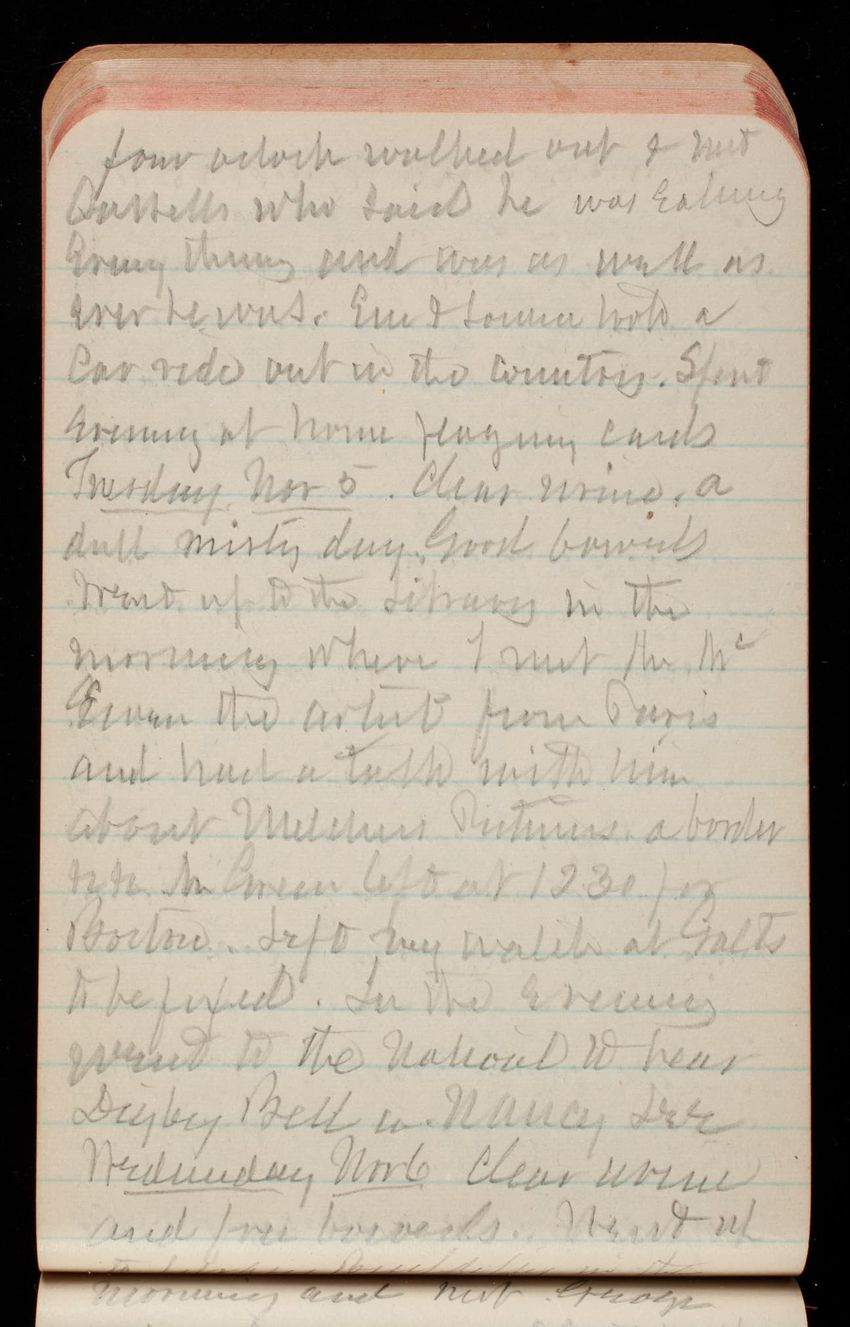 four oclock walked out & met
Cassells who said he was Eating
Every thing and was as well as
ever he was. Em & Louisa took a
Car ride out in the country. Spent
evening at home playing cards
Tuesday, Nov 5. Clear urine. a
dull misty day. Good bowels
Went up to the Library in the
morning where I met Mr. Mc
Ewan the artist from Paris
and had a talk with him
about Melchers Pictures. a border
Mr Green left at 1230 for
Boston. Left my watch at Galts
to be fixed. In the Evening
went to the National to hear
Digby Bell in Nancy Lee
Wednesday Nov 6 Clear urine
and free bowels. Went up
in the
morning and met George